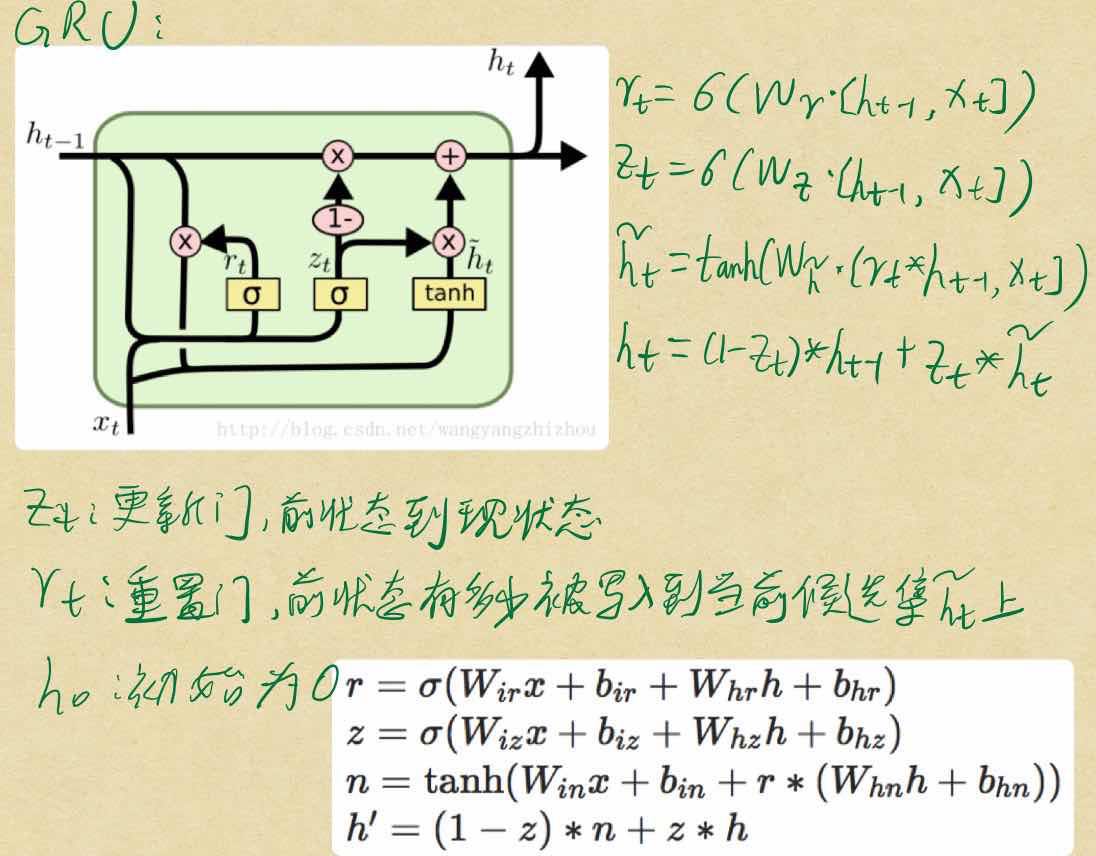 GRU:
h_t
h_{t-1}
x
+
1-
x
x
r_t
z_t
h̃_t
σ
σ
tanh
x_t
http://blog.csdn.net/wangyangzhizhou
r_t = 6(W_r·[h_{t-1}, x_t])
z_t = 6(W_z·[h_{t-1}, x_t])
h̃_t = tanh(W_h̃·[r_t*h_{t-1}, x_t])
h_t = (1-z_t)*h_{t-1} + z_t*h̃_t
z_t:更新门,前状态到现状态
r_t:重置门,前状态有多少被写入到当前候选集h̃_t上
h_0:初始为0
r = σ(W_{ir}x + b_{ir} + W_{hr}h + b_{hr})
z = σ(W_{iz}x + b_{iz} + W_{hz}h + b_{hz})
n = tanh(W_{in}x + b_{in} + r * (W_{hn}h + b_{hn}))
h' = (1 − z) * n + z * h